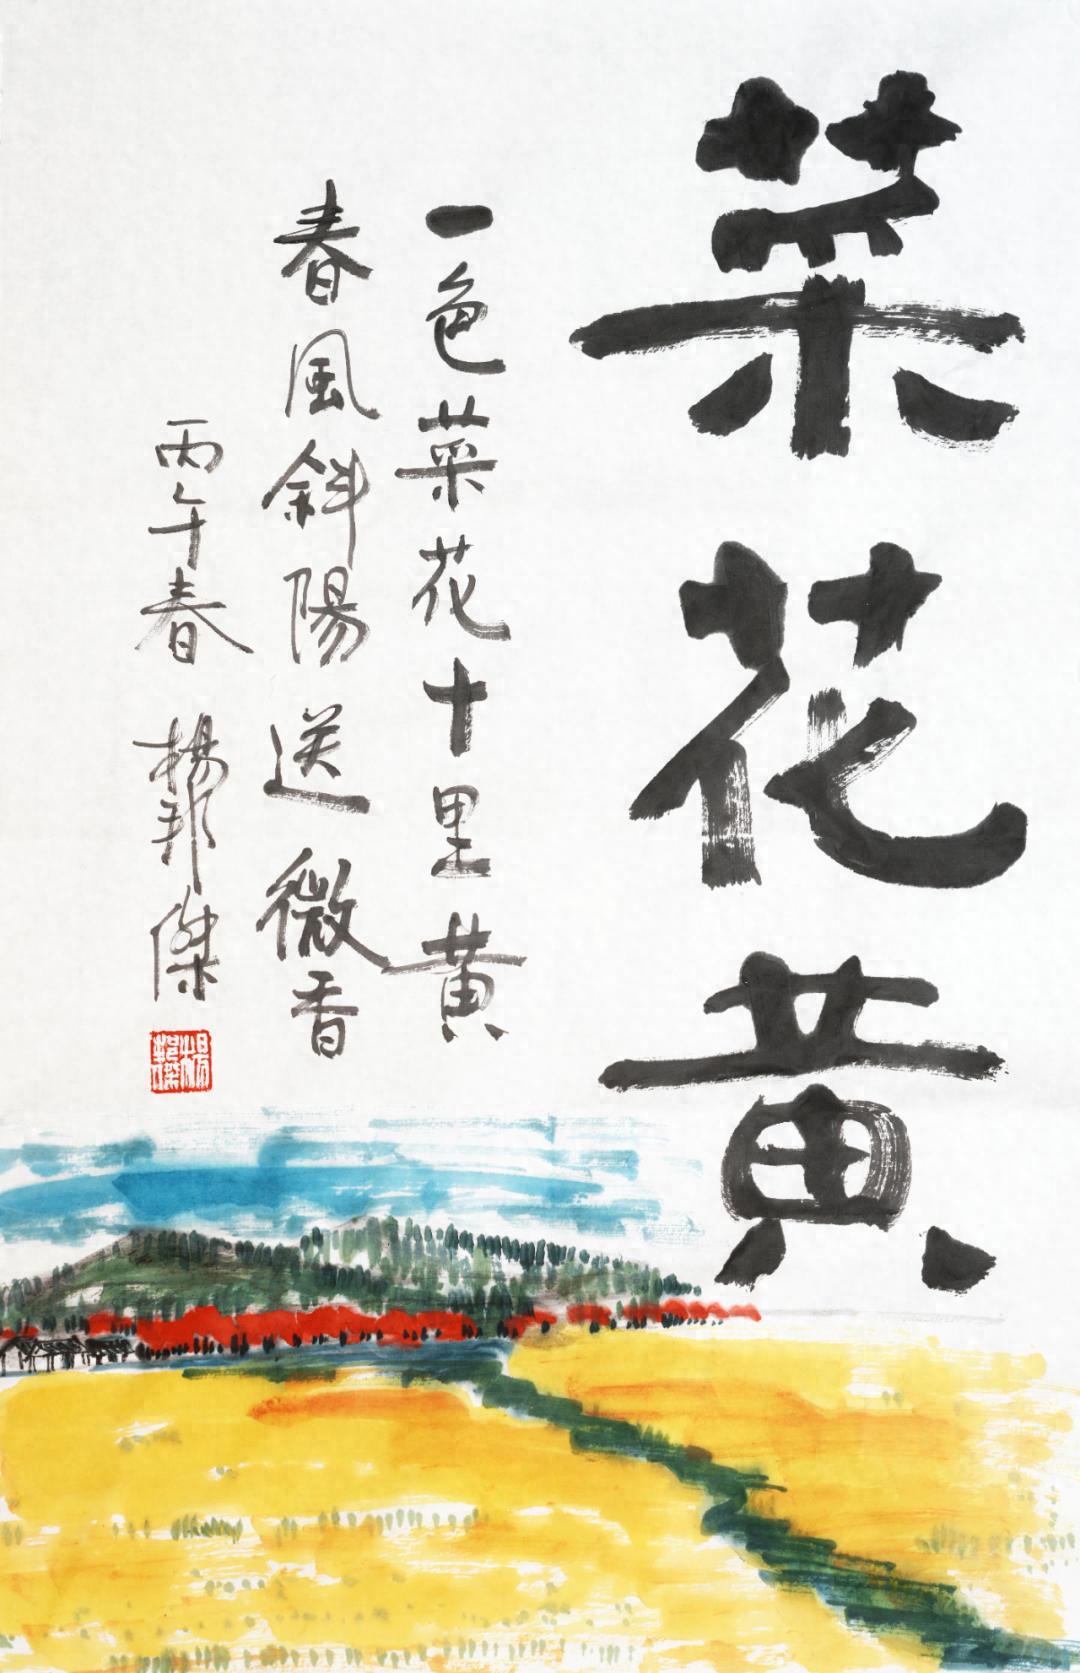 菜花黄
一色菜花十里黄
春風斜陽送微香
丙午春 楊邦傑
楊邦傑